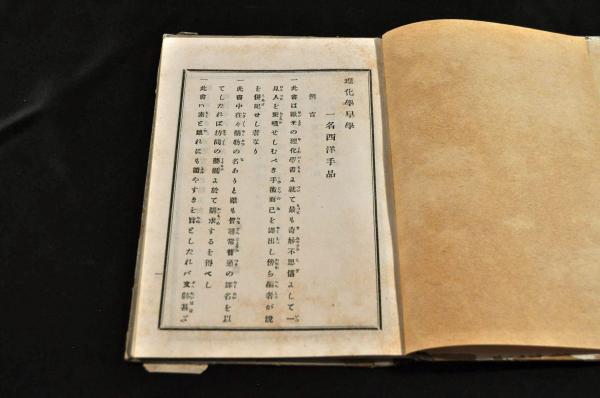 理化學早學
一名西洋手品
例言
一此書は歐米の理化學書よ就て最も奇妙不思儀よして一
見人を驚嘆せしむべき手術而已を譯出し傍ら編者が說
を併記せし者なり
一此書中往々藥劑の名あると雖も皆尋常普通の譯名を以
てしたれば坊間の藥舖よ於て購求するを得べし
一此書ハ素と誰れにも讀やすきを旨としたれバ文辭甚